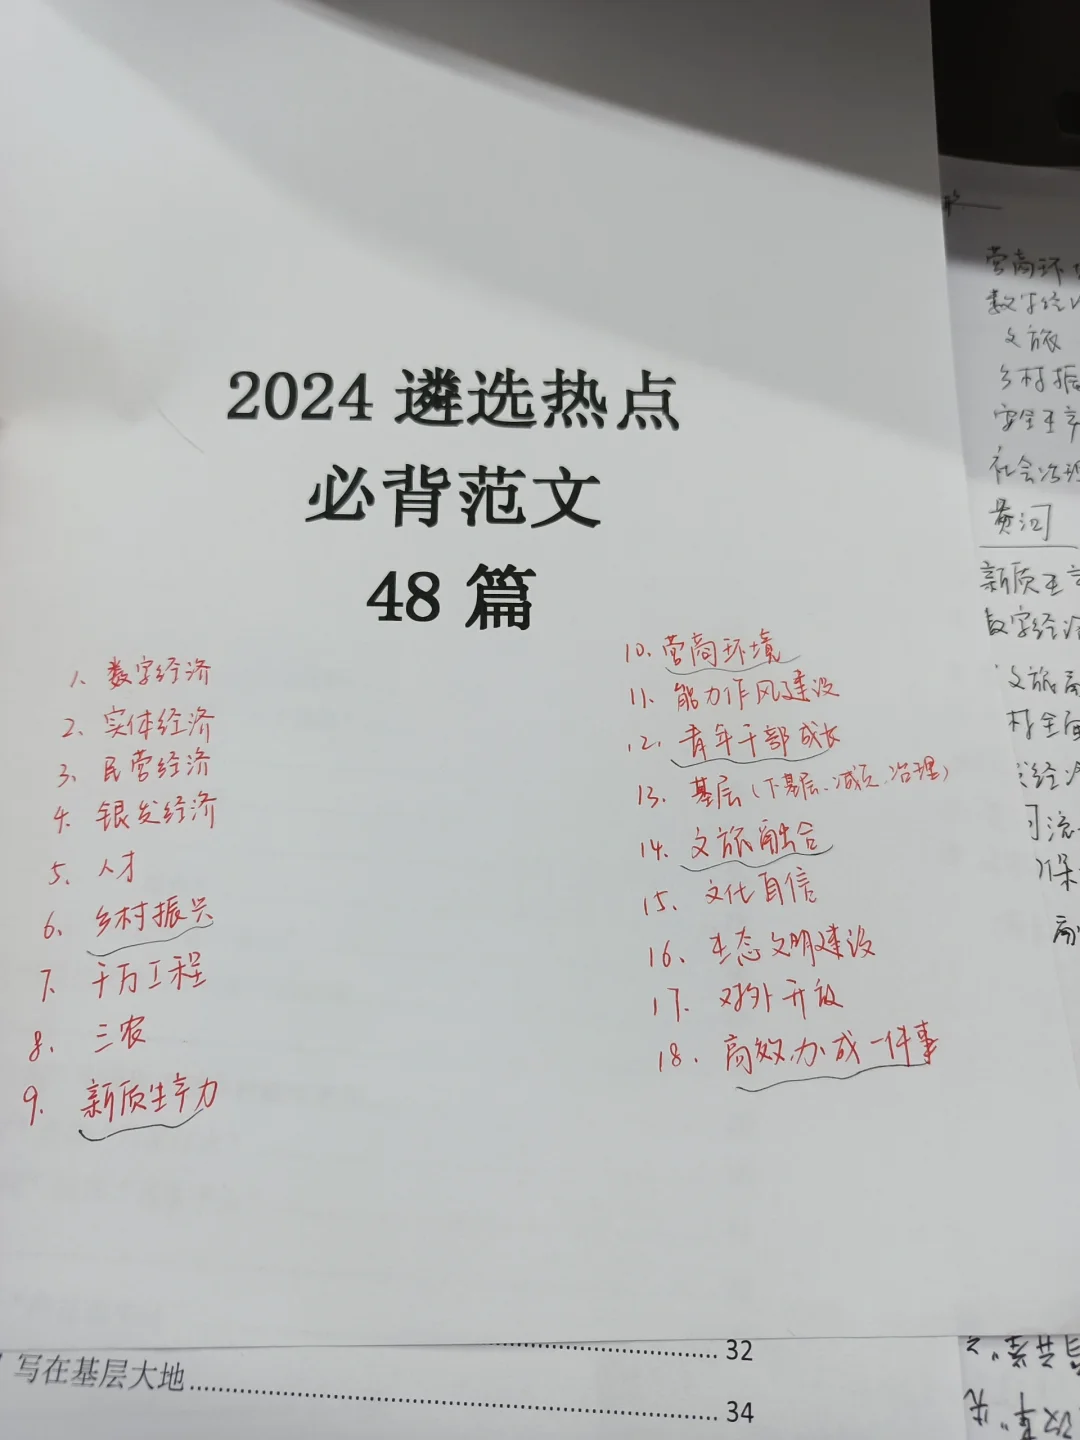 2024 遴选热点
必背范文
48 篇
1、数字经济
2、实体经济
3、民营经济
4、银发经济
5、人才
6、乡村振兴
7、千万工程
8、三农
9、新质生产力
10、营商环境
11、能力作风建设
12、青年干部成长
13、基层(下基层、减负、治理)
14、文旅融合
15、文化自信
16、生态文明建设
17、对外开放
18、高效办成一件事
营商环
数字经
文旅
乡村振
安全生产
社会治理
黄河
新质生产
数字经济
文旅
村全面
经济
流
保
高
32
写在基层大地
34